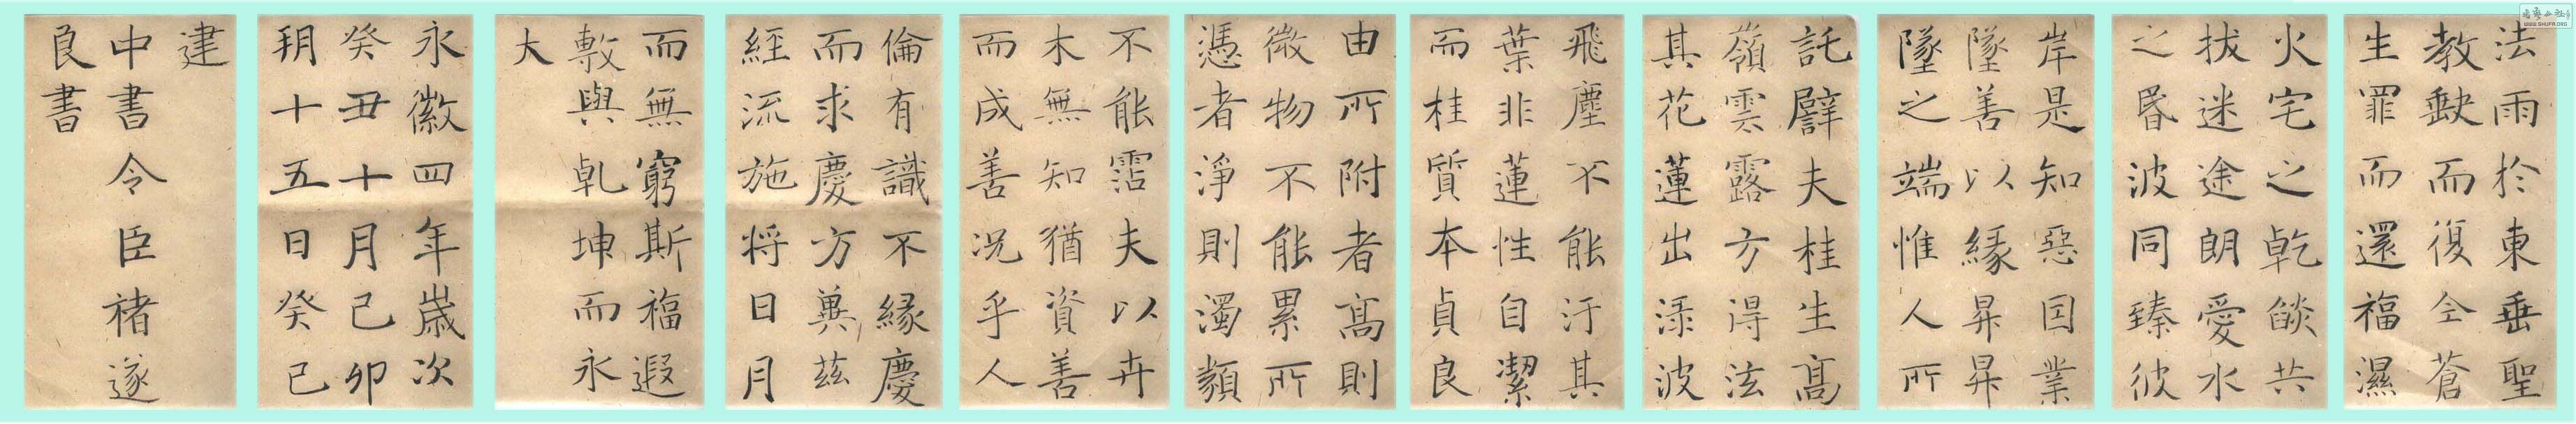 法雨於東垂聖
教缺而復全蒼
生罪而還福濕
火宅之乾燄共
拔迷途朗愛水
之昏波同臻彼
岸是知惡因業
墜善以緣昇昇
墜之端惟人所
託譬夫桂生高
嶺雲露方得泫
其花蓮出淥波
飛塵不能汙其
葉非蓮性自潔
而桂質本貞良
由所附者高則
微物不能累所
憑者淨則濁類
不能霑夫以卉
木無知猶資善
而成善況乎人
倫有識不緣慶
而求慶方冀茲
經流施将日月
而無窮斯福遐
敷與乹坤而永
大
永徽四年歲次
癸丑十月己卯
朔十五日癸巳
建
中書令臣褚遂
良書
WWW.SHUFA.ORG